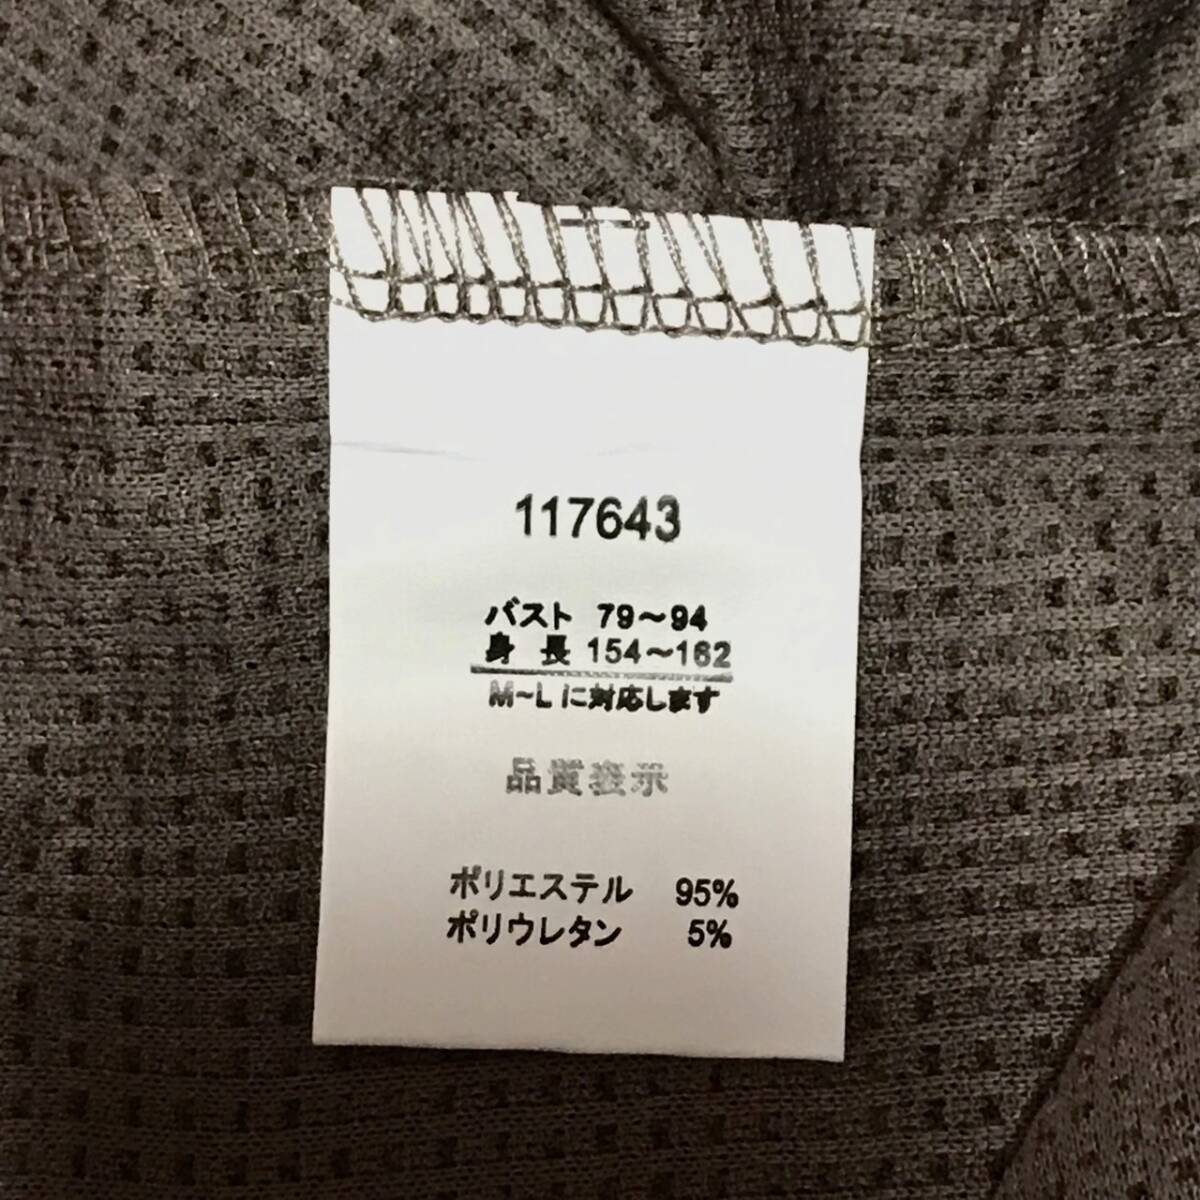 117643
バスト 79～94
身 長 154～162
M~Lに対応します
品質表示
ポリエステル 95%
ポリウレタン 5%